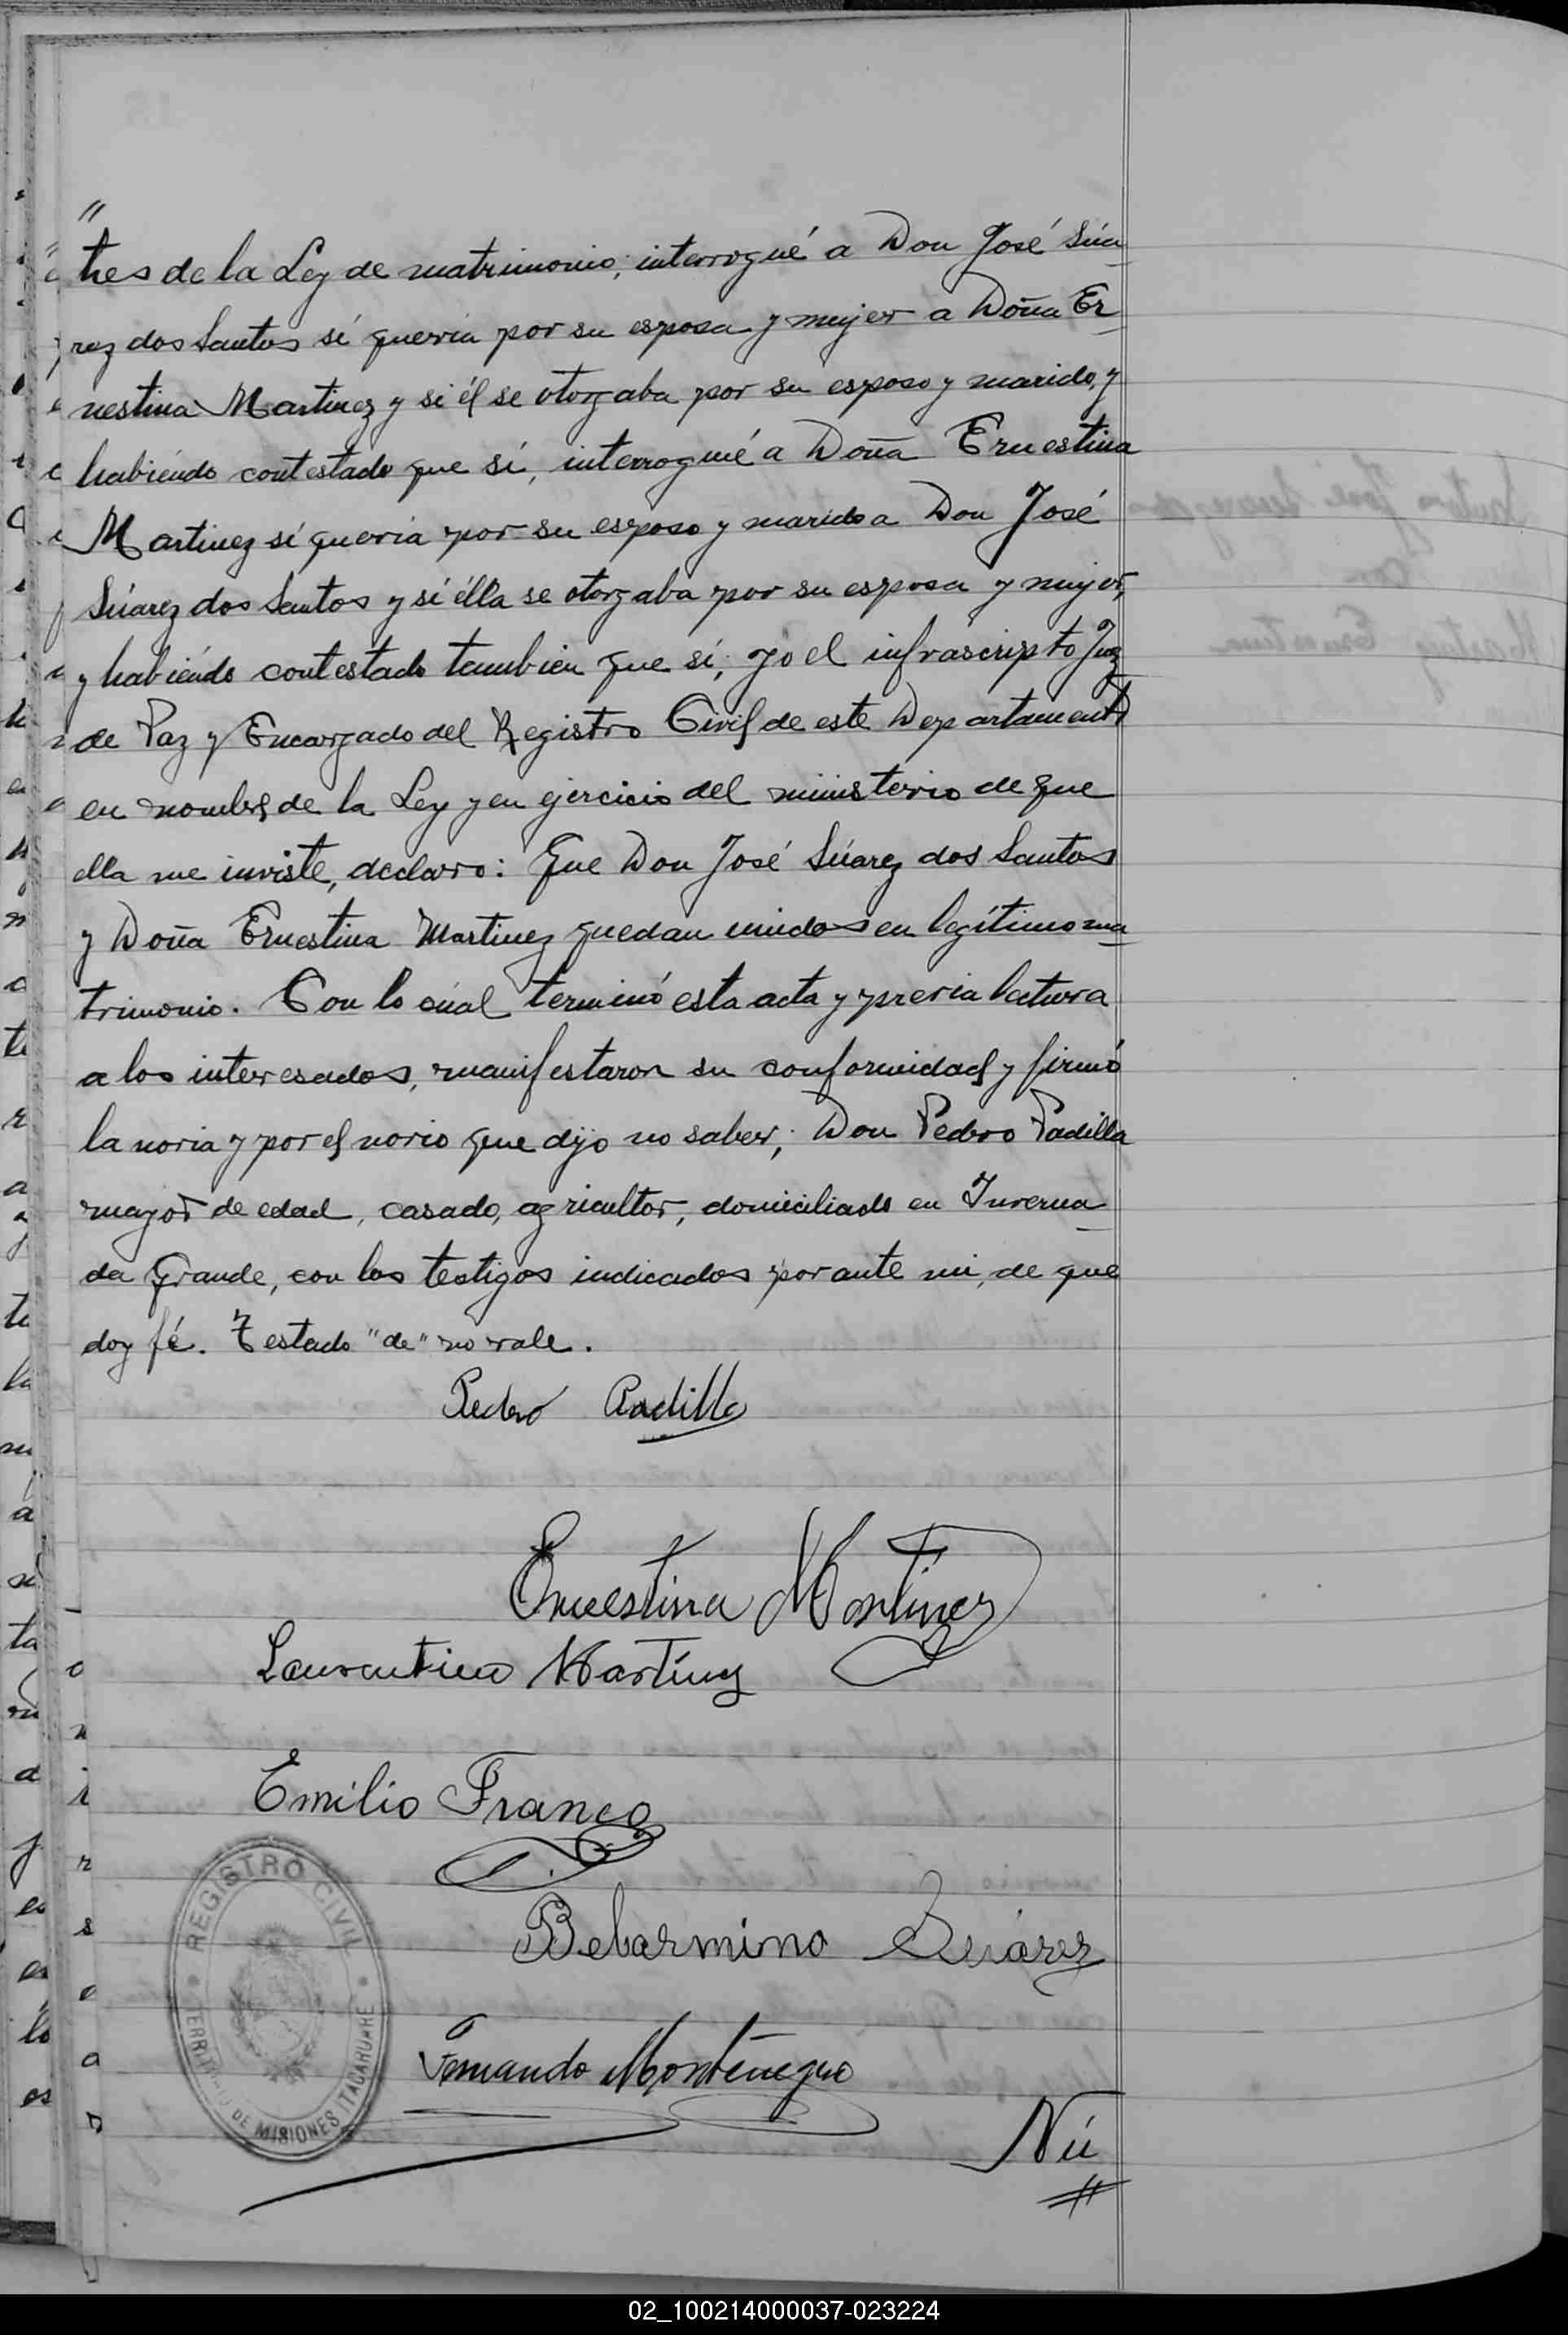 "
tres de la Ley de matrimonio; interrogué a Don José Súa
rez dos Santos sí queria por su esposa y mujer a Doña Er
nestina Martinez y si él se otorgaba por su esposo y marido, y
habiéndo contestado que sí, interrogué a Doña Ernestina
Martinez sí queria por su esposo y marido a Don José
Súarez dos Santos y sí élla se otorgaba por su esposa y mujer,
y habiéndo contestado tambien que sí; yo el infrascripto Juez
de Paz y Encargado del Registro Civil de este Departamento
en nombre de la Ley y en ejercicio del ministerio de que
ella me inviste, declaro: Que Don José Súarez dos Santos
y Doña Ernestina Martinez quedan unidos en legítimo ma
trimonio. Con lo cúal terminó esta acta y previa lectura
a los interesados, manifestaron su conformidad y firmó
la novia y por el novio que dijo no saber; Don Pedro Padilla
mayor de edad, casado, agricultor, domiciliado en Inverna
da Grande, con los testigos indicados por ante mi, de que
doy fé. Testado "de" no vale.
Pedro Padilla
Ernestina Martinez
Laurentina Martínez
Emilio Franco
Belarmino Suárez
Fernando Montenegro
REGISTRO CIVIL
TERRITORIO DE MISIONES ITACARUARE
Nú
02_100214000037-023224